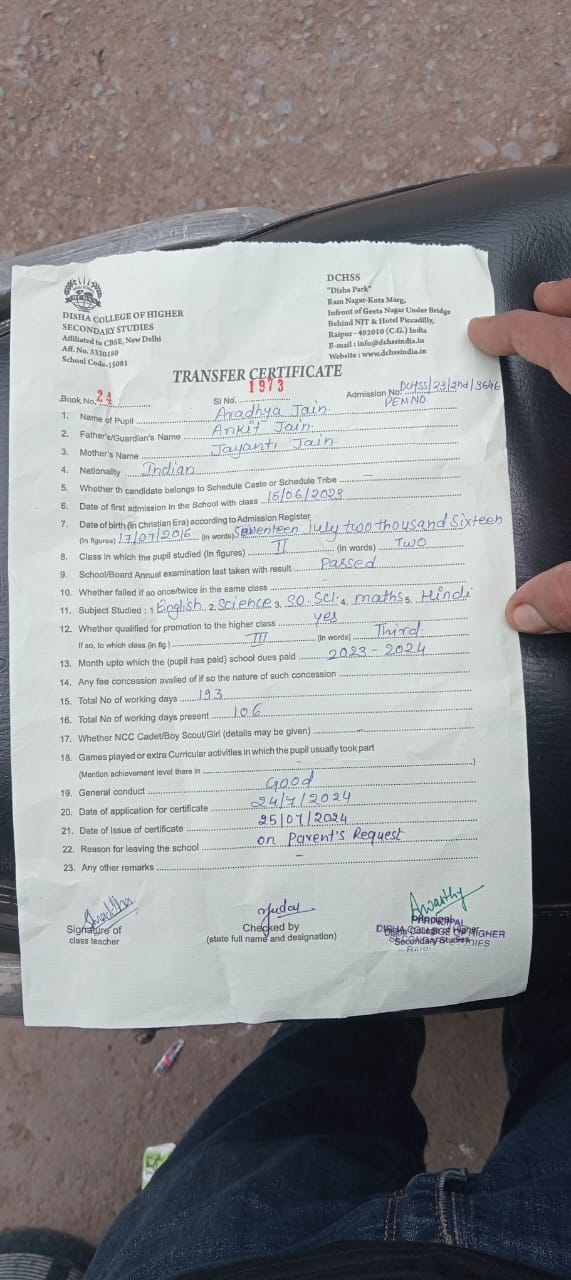 DISHA COLLEGE OF HIGHER
SECONDARY STUDIES
Affiliated to CBSE, New Delhi
Aff. No. 3330180
School Code-15081
DCHSS
"Disha Park"
Ram Nagar-Kota Marg,
Infront of Geeta Nagar Under Bridge
Behind NIT & Hotel Piccadilly,
Raipur - 492010 (C.G.) India
E-mail : info@dchssindia.in
Website : www.dchssindia.in
TRANSFER CERTIFICATE
Book No. 24 Sl No. 1973 Admission No. DCHSS/23/2nd/3646
PEN NO.
1. Name of Pupil Aradhya Jain.
2. Father's/Guardian's Name Ankit Jain.
3. Mother's Name Jayanti Jain.
4. Nationality Indian
5. Whether th candidate belongs to Schedule Caste or Schedule Tribe —
6. Date of first admission in the School with class 15/06/2023
7. Date of birth (in Christian Era) according to Admission Register
(In figures) 17/07/2016 (In words) Seventeen July two thousand Sixteen
8. Class in which the pupil studied (In figures) II (In words) TWO
9. School/Board Annual examination last taken with result Passed
10. Whether failed if so once/twice in the same class -
11. Subject Studied : 1 English 2. Science 3. SO. Sci. 4. maths 5. Hindi
12. Whether qualified for promotion to the higher class yes
If so, to which class (in fig.) III (In words) Third.
13. Month upto which the (pupil has paid) school dues paid 2023-2024
14. Any fee concession availed of if so the nature of such concession
15. Total No of working days 193
16. Total No of working days present 106
17. Whether NCC Cadet/Boy Scout/Girl (details may be given) -
18. Games played or extra Curricular activities in which the pupil usually took part
(Mention achievement level there in )
19. General conduct Good
20. Date of application for certificate 24/7/2024
21. Date of issue of certificate 25/07/2024
22. Reason for leaving the school on Parent's Request
23. Any other remarks -
Shraddha
Signature of
class teacher
Checked by
(state full name and designation)
Awasthy
PRINCIPAL
DISHA COLLEGE OF HIGHER
Secondary Studies